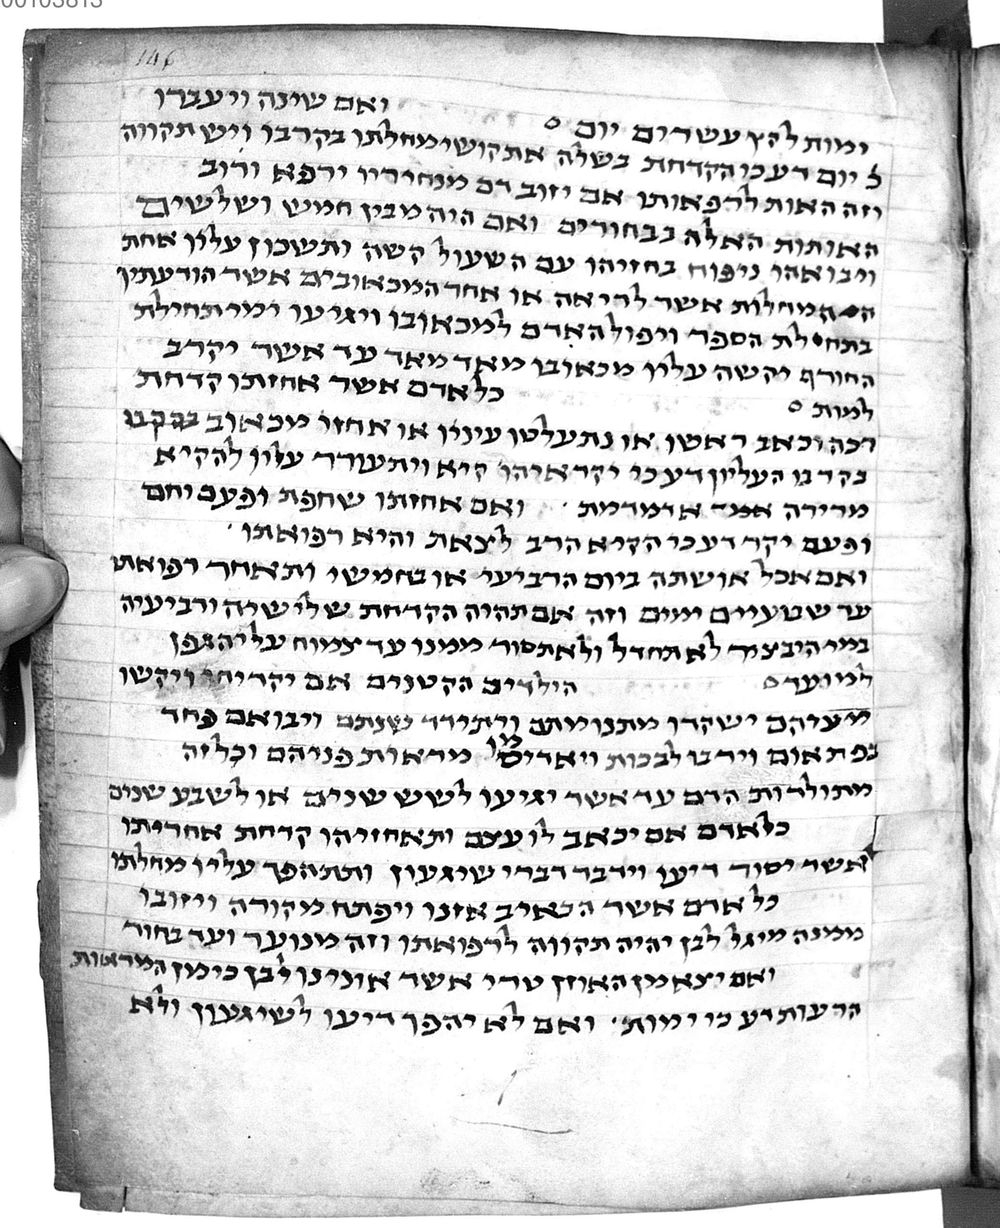 00103813
146
ואם שינה ויעברו
ימות להץ עשרים יום ס
ל יום דע כי הקדחת בשלה את קושי מחלתו בקרבו ויש תקווה
וזה האות לרפאותו אם יזוב דם מנחיריו ירפא ורוב
האותות האלה בבחורים ואם היה מבין חמש ושלשים
ויבואהו ניפוח בחזיהו עם השעול קשה ותשכון עליו אחת
המחלות אשר לריאה או אחד המכאובים אשר הודעתיך
בתחילת הספר ויפול האדם למכאובו ויגיעו ימי תחילת
החורף יקשה עליו מכאובו מאד מאד עד אשר יקרב
למות ס כל אדם אשר אחזתו קדחת
רכה וכאב ראשו או נתעלטו עיניו או אחזו מכאוב
בקרבו העליון דע כי יקראיהו קיא ויתעורר עליו להקיא
מרירה אדמדמת ואם אחזתו שחפת ופעם יחם
ופעם יקר דע כי הקיא הרב לצאת והיא רפואתו
ואם אכל או שתה ביום הרביעי או בחמישי ותאחר רפואתו
עד שבעיים ימים וזה אם תהיה הקדחת שלישית ורביעיה
בימי הבציר לא תחדל ולא תסור ממנו עד צמוח עלי הגפן
למועד ס הילדים הקטנים אם יקריחו ויקשו
מעיהם ישקדו מתנומתם ותידד שנתם ויבואם פחד
בפתאום וירבו לבכות ויאדימו מראות פניהם וכל זה
מתולדות הדם עד אשר יגיעו לשש שנים או לשבע שנים
כל אדם אם יכאב לו עצם ותאחזיהו קדחת אחריתו
אשר יסור דיעו וידבר דברי שיגעון ותתהפך עליו מחלתו
כל אדם אשר הכאיב אזנו ויפתח מקורה ויזובו
ממנה מיגל לבן יהיה תקווה לרפואתו וזה מנוער ועד בחור
ואם יצא מן האוזן טרי אשר אונינו לבן כימין המראות
הרעות דע כי ימות ואם לא יהפך דיעו לשיגעון ולא